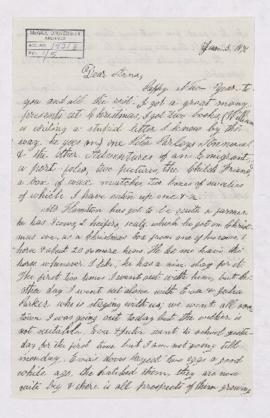 McGILL UNIVERSITY
ARCHIVES
ACC. NO.
REF.
Jan. 3.
Dear Anna,
Happy New Year to
you and all the rest. I got a great many
presents at Christmas, I got two books, (William
is writing a stupid letter I know by the
way he goes on) one Peter Parleys Annual
& the other Adventures of an Emigrant,
a port folio, two pictures, the Childs Friend
a box of wax matches two boxes of candies
of which I have eaten up one
Hamilton has got to be quite a farmer
he has 2 cows, 2 heifers, calf, which he got on
a Christmas
horse & about 20 more hens. He lets me have the
horse whenever I like, he has a nice sleigh for it.
The first two times I went out with him, but the
other day I went out alone with Eva &
Parker who is staying with us; we went all over
town I was going out today but the weather is
not suitable. Eva went to school yester-
day for the first time but I am not going till
monday. Eva's doves layed two eggs a good
while ago, she hatched them, they are now
quite big & there is all prospects of them growing